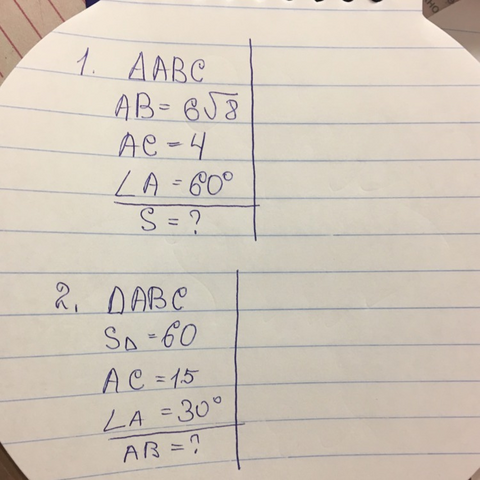 1. ΔABC
AB = 6√8
AC = 4
∠A = 60°
S = ?
2. ΔABC
SΔ = 60
AC = 15
∠A = 30°
AB = ?